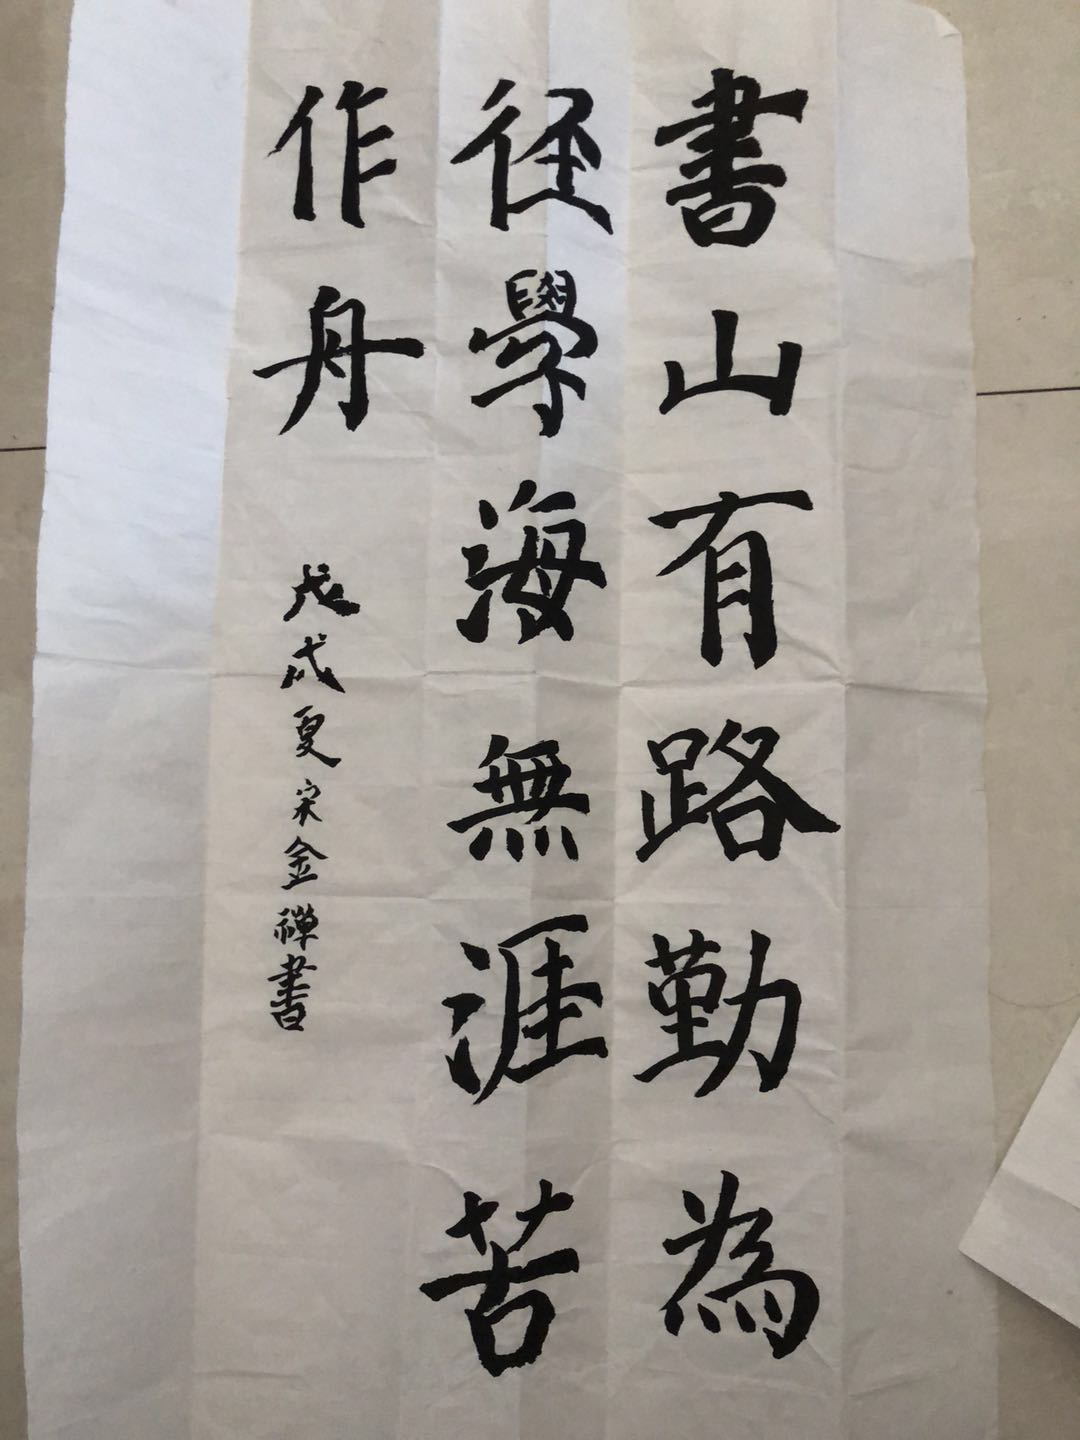 書山有路勤為
徑學海無涯苦
作舟
戊戌夏宋金禪書